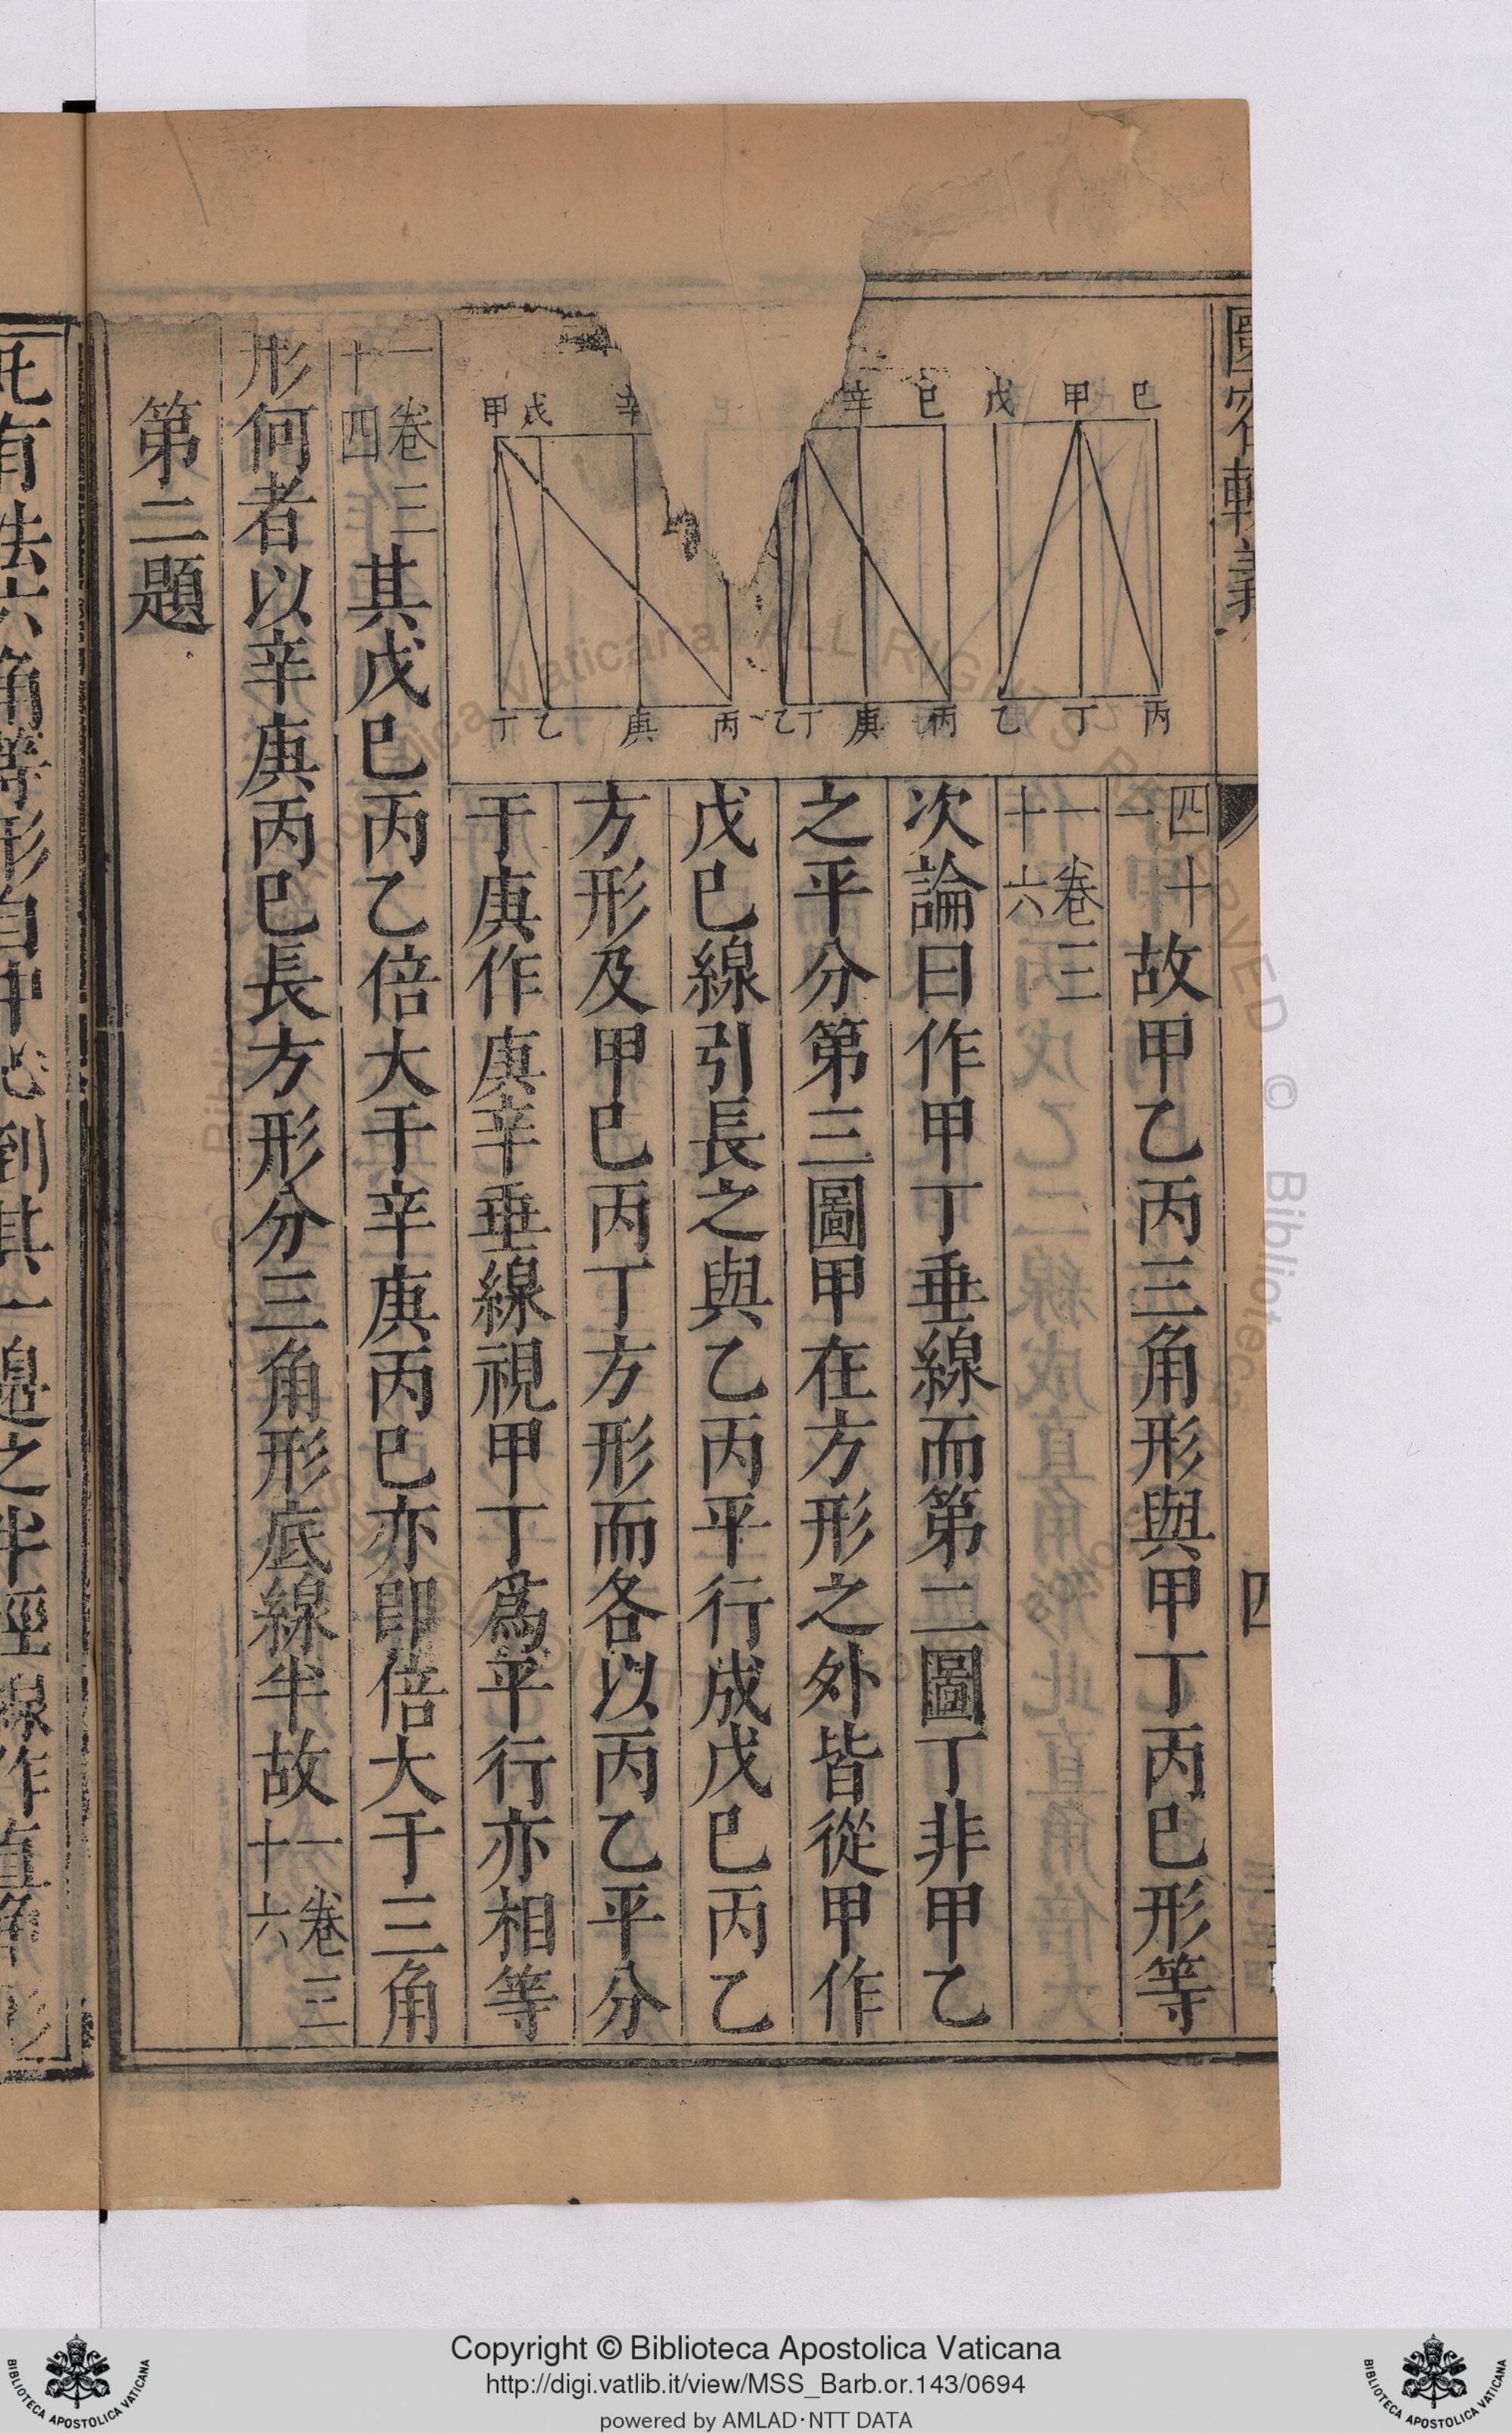 圜容較義
四
四十一故甲乙丙三角形與甲丁丙巳形等
一卷三十六
次論曰作甲丁垂線而第二圖丁非甲乙
之平分第三圖甲在方形之外皆從甲作
戊巳線引長之與乙丙平行成戊巳丙乙
方形及甲巳丙丁方形而各以丙乙平分
于庚作庚辛垂線視甲丁為平行亦相等
一卷三十四其戊巳丙乙倍大于辛庚丙巳亦即倍大于三角
形何者以辛庚丙巳長方形分三角形底線半故一卷三十六
第二題
巳 甲 戊
丙 丁 乙
巳 辛
丙 庚 丁 乙
辛 戊 甲
丙 庚 乙 丁
Copyright © Biblioteca Apostolica Vaticana
http://digi.vatlib.it/view/MSS_Barb.or.143/0694
powered by AMLAD·NTT DATA
BIBLIOTECA APOSTOLICA VATICANA
BIBLIOTECA APOSTOLICA VATICANA